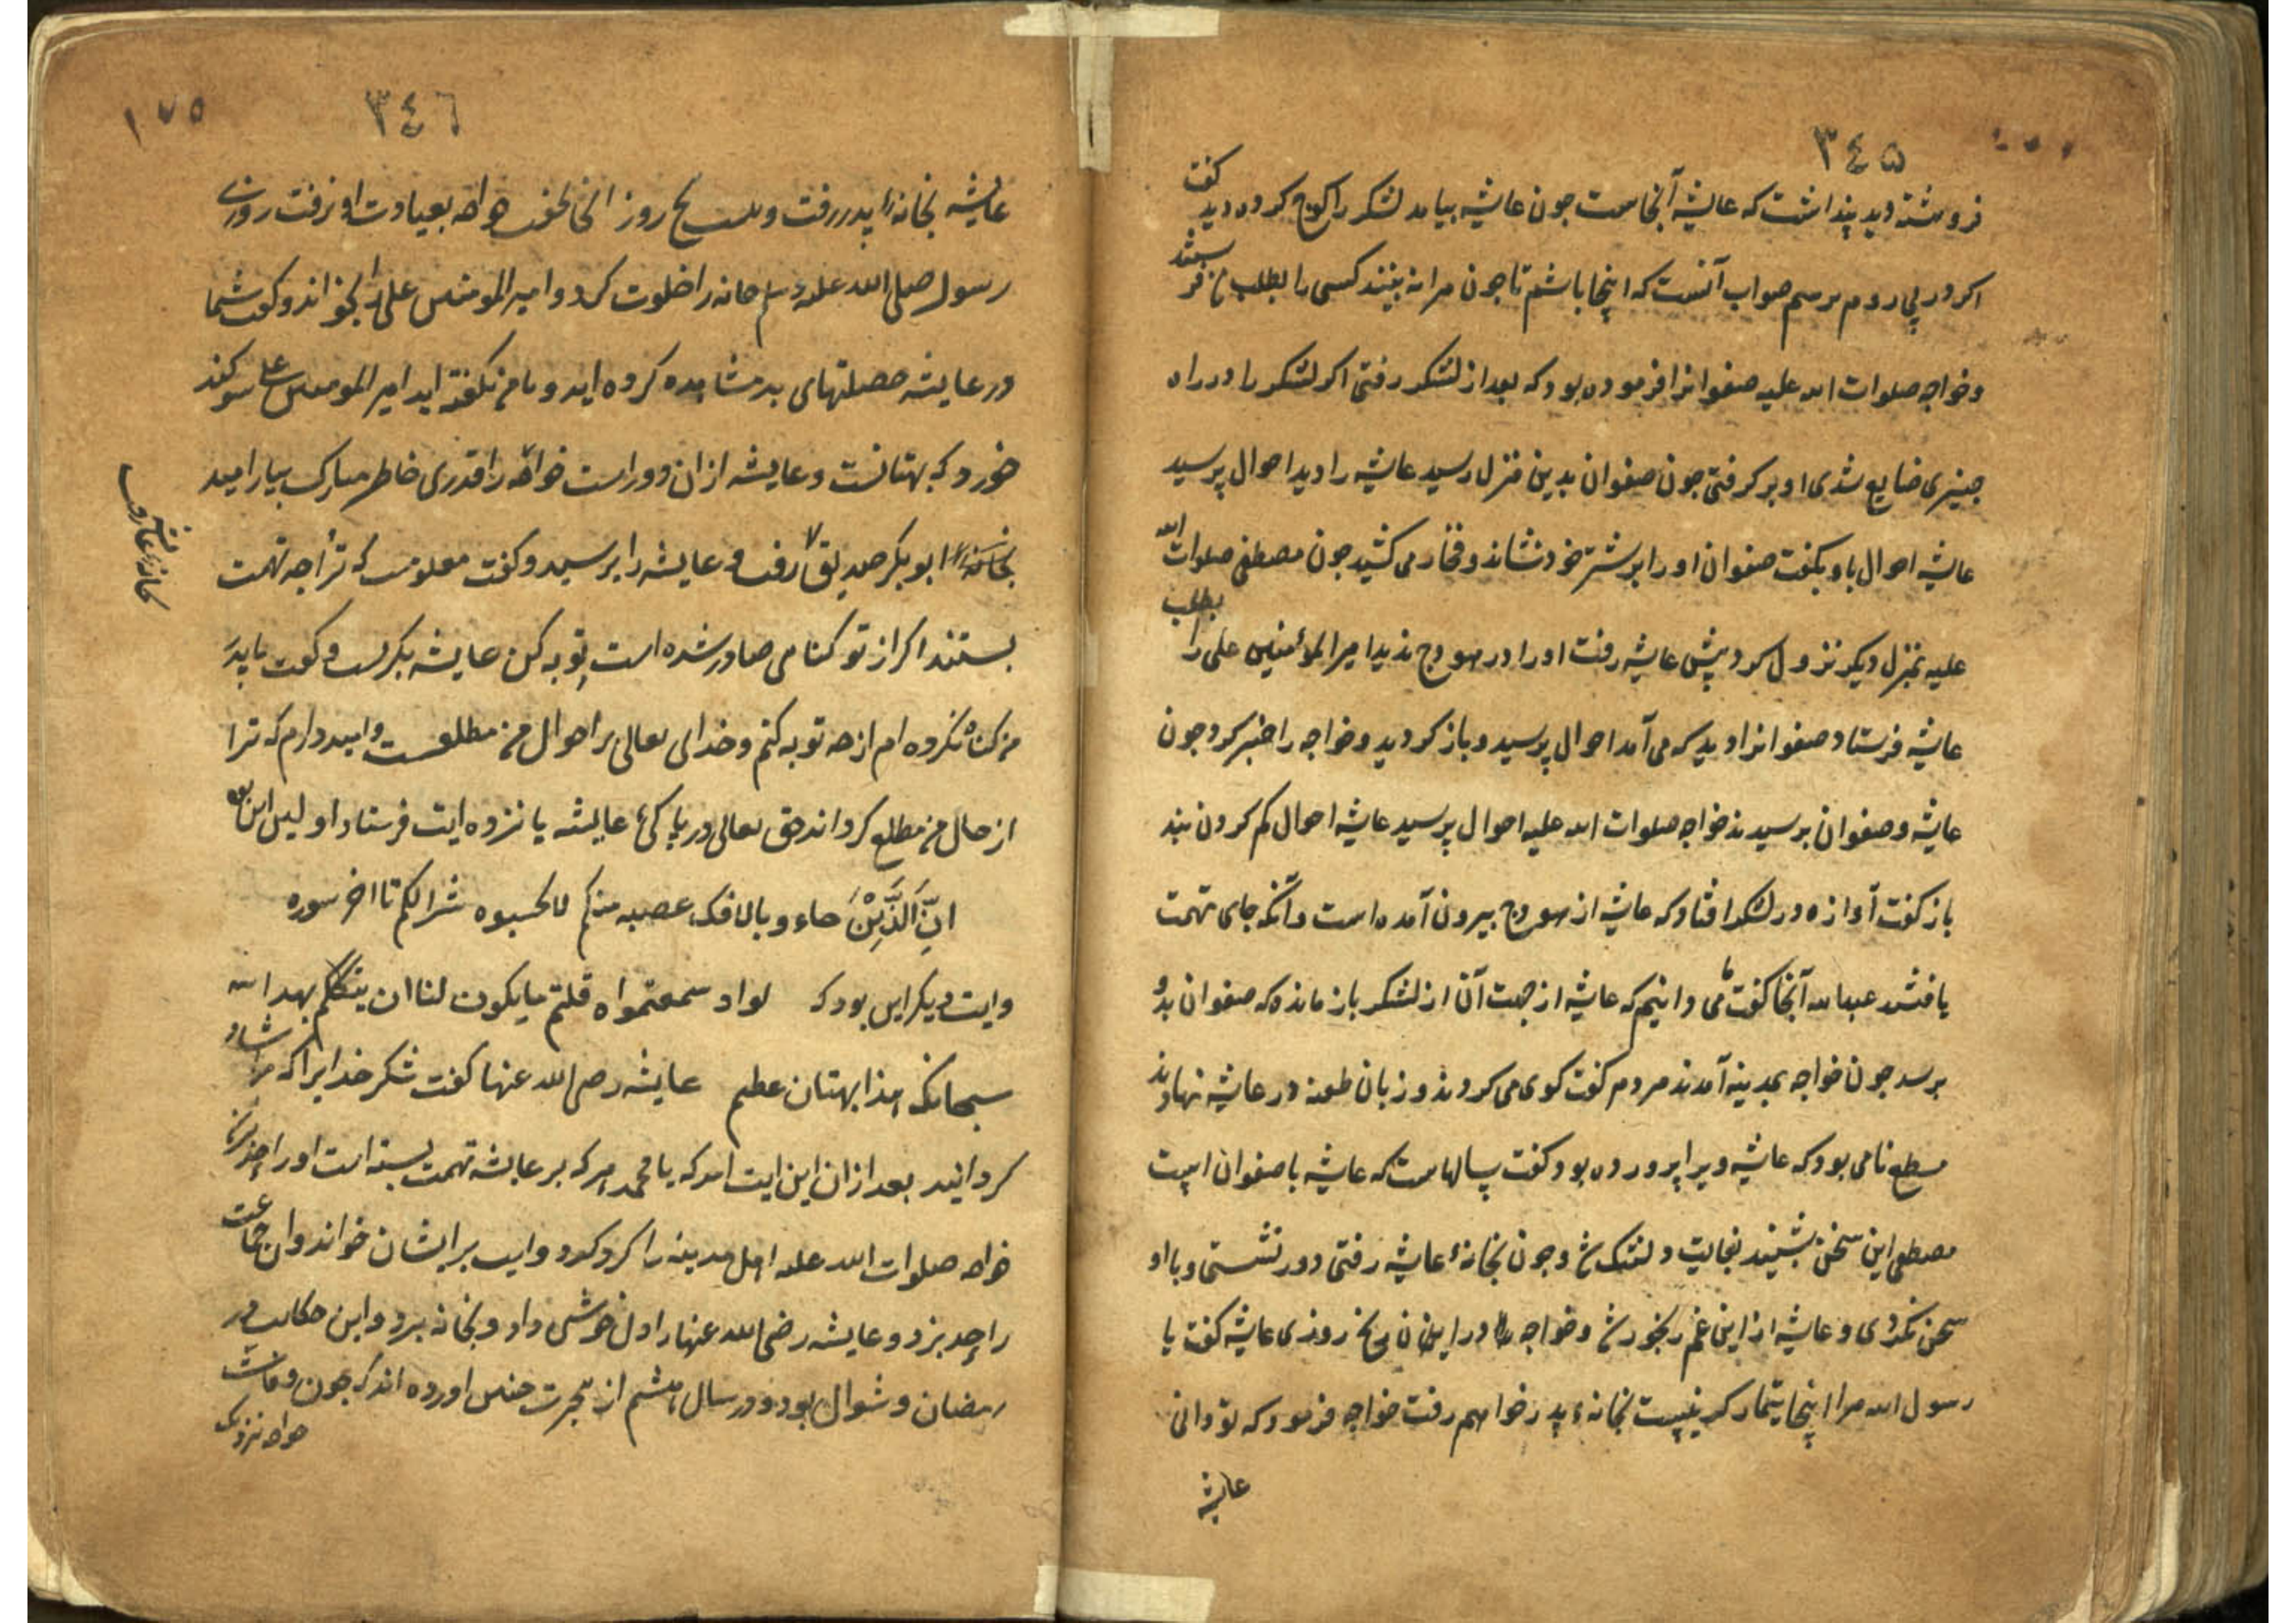 ٣٤٥
فروهشته دید پنداشت که عایشه آنجاست جون عایشه بیامد لشکر را کوج کرده دید کفت
اکر در پی روم برسم صواب آنست که اینجا باشم تا جون مرا نه بینند کسی را بطلب من فرستند
وخواجه صلوات الله علیه صفوانرا فرموده بود که بعد از لشکر رفتی اکر لشکر را در راه
جیزی ضایع شدی او بر کرفتی جون صفوان بدین منزل رسید عایشه را دید احوال پرسید
عایشه احوال با او بکفت صفوان او را بر شتر خود نشاند و مي کشید جون مصطفی صلوات الله
علیه بمنزل دیکر نزول کرد پیش عایشه رفت او را در هودج ندید امیر المؤمنین علی را بطلب
عایشه فرستاد صفوانرا دید که می آمد احوال پرسید و باز کردید و خواجه را خبر کرد جون
عایشه و صفوان برسیدند خواجه صلوات الله علیه احوال پرسید عایشه احوال کم کردن بند
باز کفت آوازه در لشکر افتاد که عایشه از هودج بیرون آمده است وآنکه جای تهمت
یافتند عبدالله آنجا کفت ما می دانیم که عایشه از جهت آن از لشکر باز مانده که صفوان بدو
برسد جون خواجه بمدینه آمدند مردم کفت کوی می کردند و زبان طعنه در عایشه نهادند
مسطح نامی بود که عایشه ویرا پرورده بود کفت سالهاست که عایشه با صفوان است
مصطفی این سخن بشنید بغایت دلتنک شد و جون بخانهٔ عایشه رفتی دور نشستی و با او
سخن نکردی و عایشه از این غم رنجور شد و خواجه را در این روزی عایشه کفت یا
رسول الله مرا اینجا تیمار کر نیست بخانهء پدر خواهم رفت خواجه فرمود که تو دانی
عایشه
٣٤٦
١٧٥
عایشه بخانهٔ پدر رفت و روز خواجه بعیادت او نرفت روزی
رسول صلی الله علیه وسلم خانه را خلوت کرد و امیر المومنین علی را بخواند و کفت شما
در عایشه خصلتهای بد مشاهده کرده اید و با من نکفته اید امیر المومنین علی سوکند
خورد که بهتانست و عایشه از ان دور است خواجه را قدری خاطر مبارک بیارامید
بخانهٔ ابو بکر صدیق رفت و عایشه را پرسید و کفت معلومست که ترا جه تهمت
بستند اکر از تو کناهی صادر شده است توبه کن عایشه بکریست و کفت یا پدر
من کناه نکرده ام از جه توبه کنم و خدای تعالی بر احوال من مطلعست وامیددارم که ترا
از حال من مطلع کرداند حق تعالی در پاکئ عایشه پانزده ایت فرستاد اولین این بود
اِنَّ الَّذِیْنَ جاءو بالافک عصبه منکم لاتحسبوه شرا لکم تا اخر سوره
وایت دیکر این بود که لولا اذ سمعتموه قلتم مایکون لنا ان یتکلم بهذا
سبحانک هذا بهتان عظیم عایشه رضی الله عنها کفت شکر خدایرا که مرا شاد
کردانید بعد از ان این ایت امد که یا محمد هر که بر عایشه تهمت بسته است او را حد بزن
خواجه صلوات الله علیه اهل مدینه را کرد کرد و ایت بر ایشان خواند و ان جماعت
را حد بزد و عایشه رضی الله عنها را دل خوشی داد و بخانه برد و این حکایت در
رمضان و شوال بود و در سال هشتم از هجرت جنین اورده اند که جون وفات
خواجه نزدیک